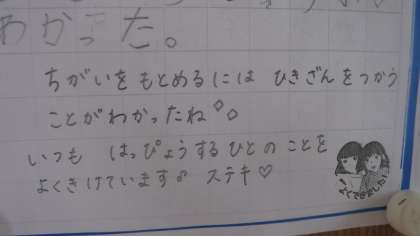 わかった。
ちがいをもとめるには ひきざんをつかう
ことがわかったね。
いつも はっぴょうするひとの ことを
よくきけています♪ ステキ♡
よくできました